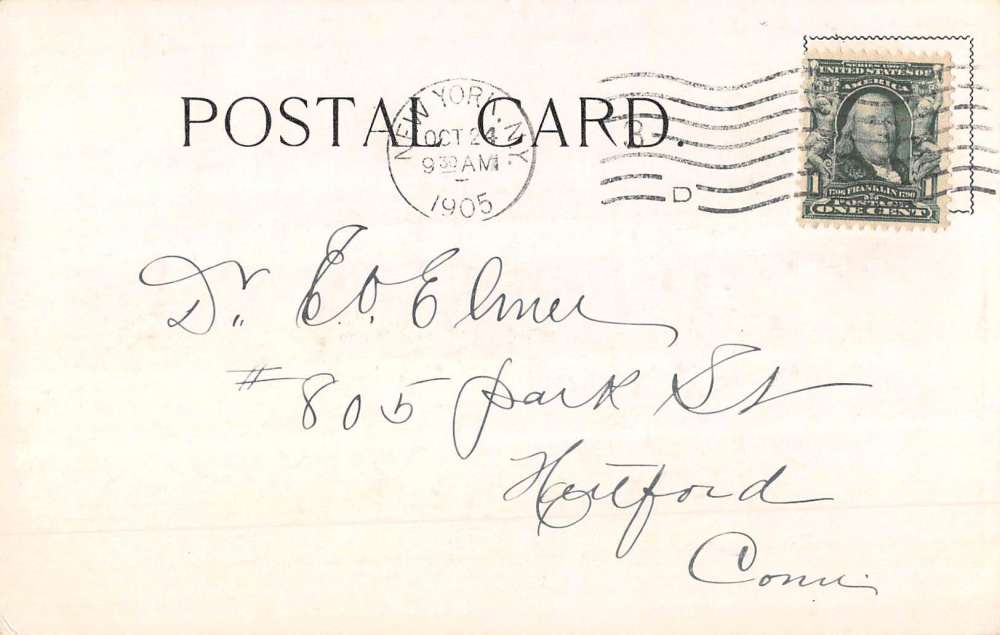 POSTAL CARD.
NEW YORK, N.Y.
OCT 24
9 30 AM
1905
3
D
SERIES 1902
UNITED STATES OF
AMERICA
1 1706 FRANKLIN 1790 1
POSTAGE
ONE CENT
Dr. E.O. Elmer
# 805 Park St
Hartford
Conn.